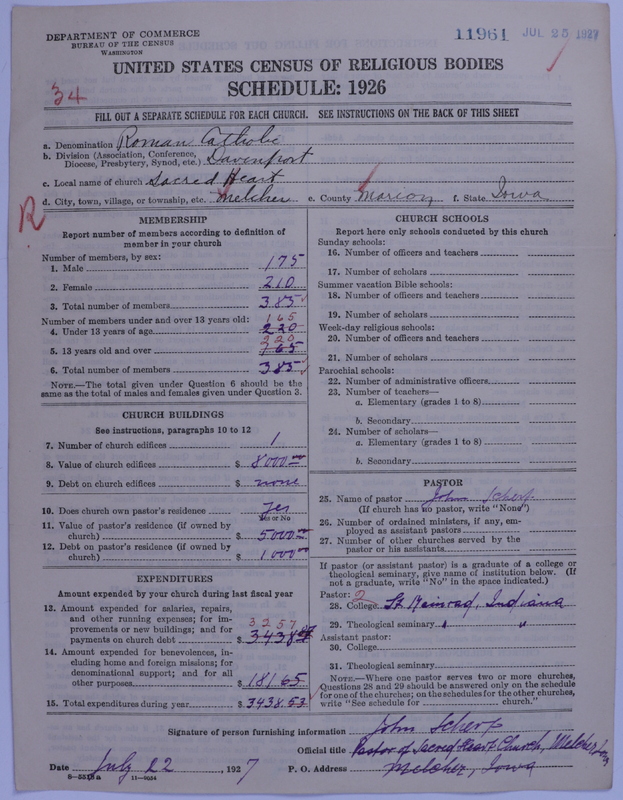 DEPARTMENT OF COMMERCE
BUREAU OF THE CENSUS
WASHINGTON
11961 JUL 25 1927
UNITED STATES CENSUS OF RELIGIOUS BODIES
34
SCHEDULE: 1926
FILL OUT A SEPARATE SCHEDULE FOR EACH CHURCH. SEE INSTRUCTIONS ON THE BACK OF THIS SHEET
a. Denomination Roman Catholic
b. Division (Association, Conference, Diocese, Presbytery, Synod, etc.) Davenport
c. Local name of church Sacred Heart
d. City, town, village, or township, etc. Melcher e. County Marion f. State Iowa
R
MEMBERSHIP
Report number of members according to definition of
member in your church
Number of members, by sex:
1. Male 175
2. Female 210
3. Total number of members 385
Number of members under and over 13 years old:
165
4. Under 13 years of age 220
220
5. 13 years old and over 165
6. Total number of members 385
NOTE.—The total given under Question 6 should be the
same as the total of males and females given under Question 3.
CHURCH BUILDINGS
See instructions, paragraphs 10 to 12
7. Number of church edifices 1
8. Value of church edifices $ 8000.00
9. Debt on church edifices $ none
10. Does church own pastor's residence Yes
Yes or No
11. Value of pastor's residence (if owned by
church) $ 5000.00
12. Debt on pastor's residence (if owned by
church) $ 1000.00
EXPENDITURES
Amount expended by your church during last fiscal year
13. Amount expended for salaries, repairs,
and other running expenses; for im-
3257
provements or new buildings; and for
payments on church debt $ 3438
14. Amount expended for benevolences, in-
cluding home and foreign missions; for
denominational support; and for all
other purposes $ 181.65
15. Total expenditures during year $ 3438.53
CHURCH SCHOOLS
Report here only schools conducted by this church
Sunday schools:
16. Number of officers and teachers
17. Number of scholars
Summer vacation Bible schools:
18. Number of officers and teachers
19. Number of scholars
Week-day religious schools:
20. Number of officers and teachers
21. Number of scholars
Parochial schools:
22. Number of administrative officers
23. Number of teachers—
a. Elementary (grades 1 to 8)
b. Secondary
24. Number of scholars—
a. Elementary (grades 1 to 8)
b. Secondary
PASTOR
25. Name of pastor John Scherf
(If church has no pastor, write "None")
26. Number of ordained ministers, if any, em-
ployed as assistant pastors
27. Number of other churches served by the
pastor or his assistants
If pastor (or assistant pastor) is a graduate of a college or
theological seminary, give name of institution below. (If
not a graduate, write "No" in the space indicated.)
Pastor: 2
28. College St Meinrad, Indiana
29. Theological seminary " "
Assistant pastor:
30. College
31. Theological seminary
NOTE.—Where one pastor serves two or more churches,
Questions 28 and 29 should be answered only on the schedule
for one of the churches; on the schedules for the other churches,
write "See schedule for church."
Signature of person furnishing information John Scherf
Official title Pastor of Sacred Heart Church, Melcher
Date July 22, 1927 P. O. Address Melcher, Iowa
11—9054